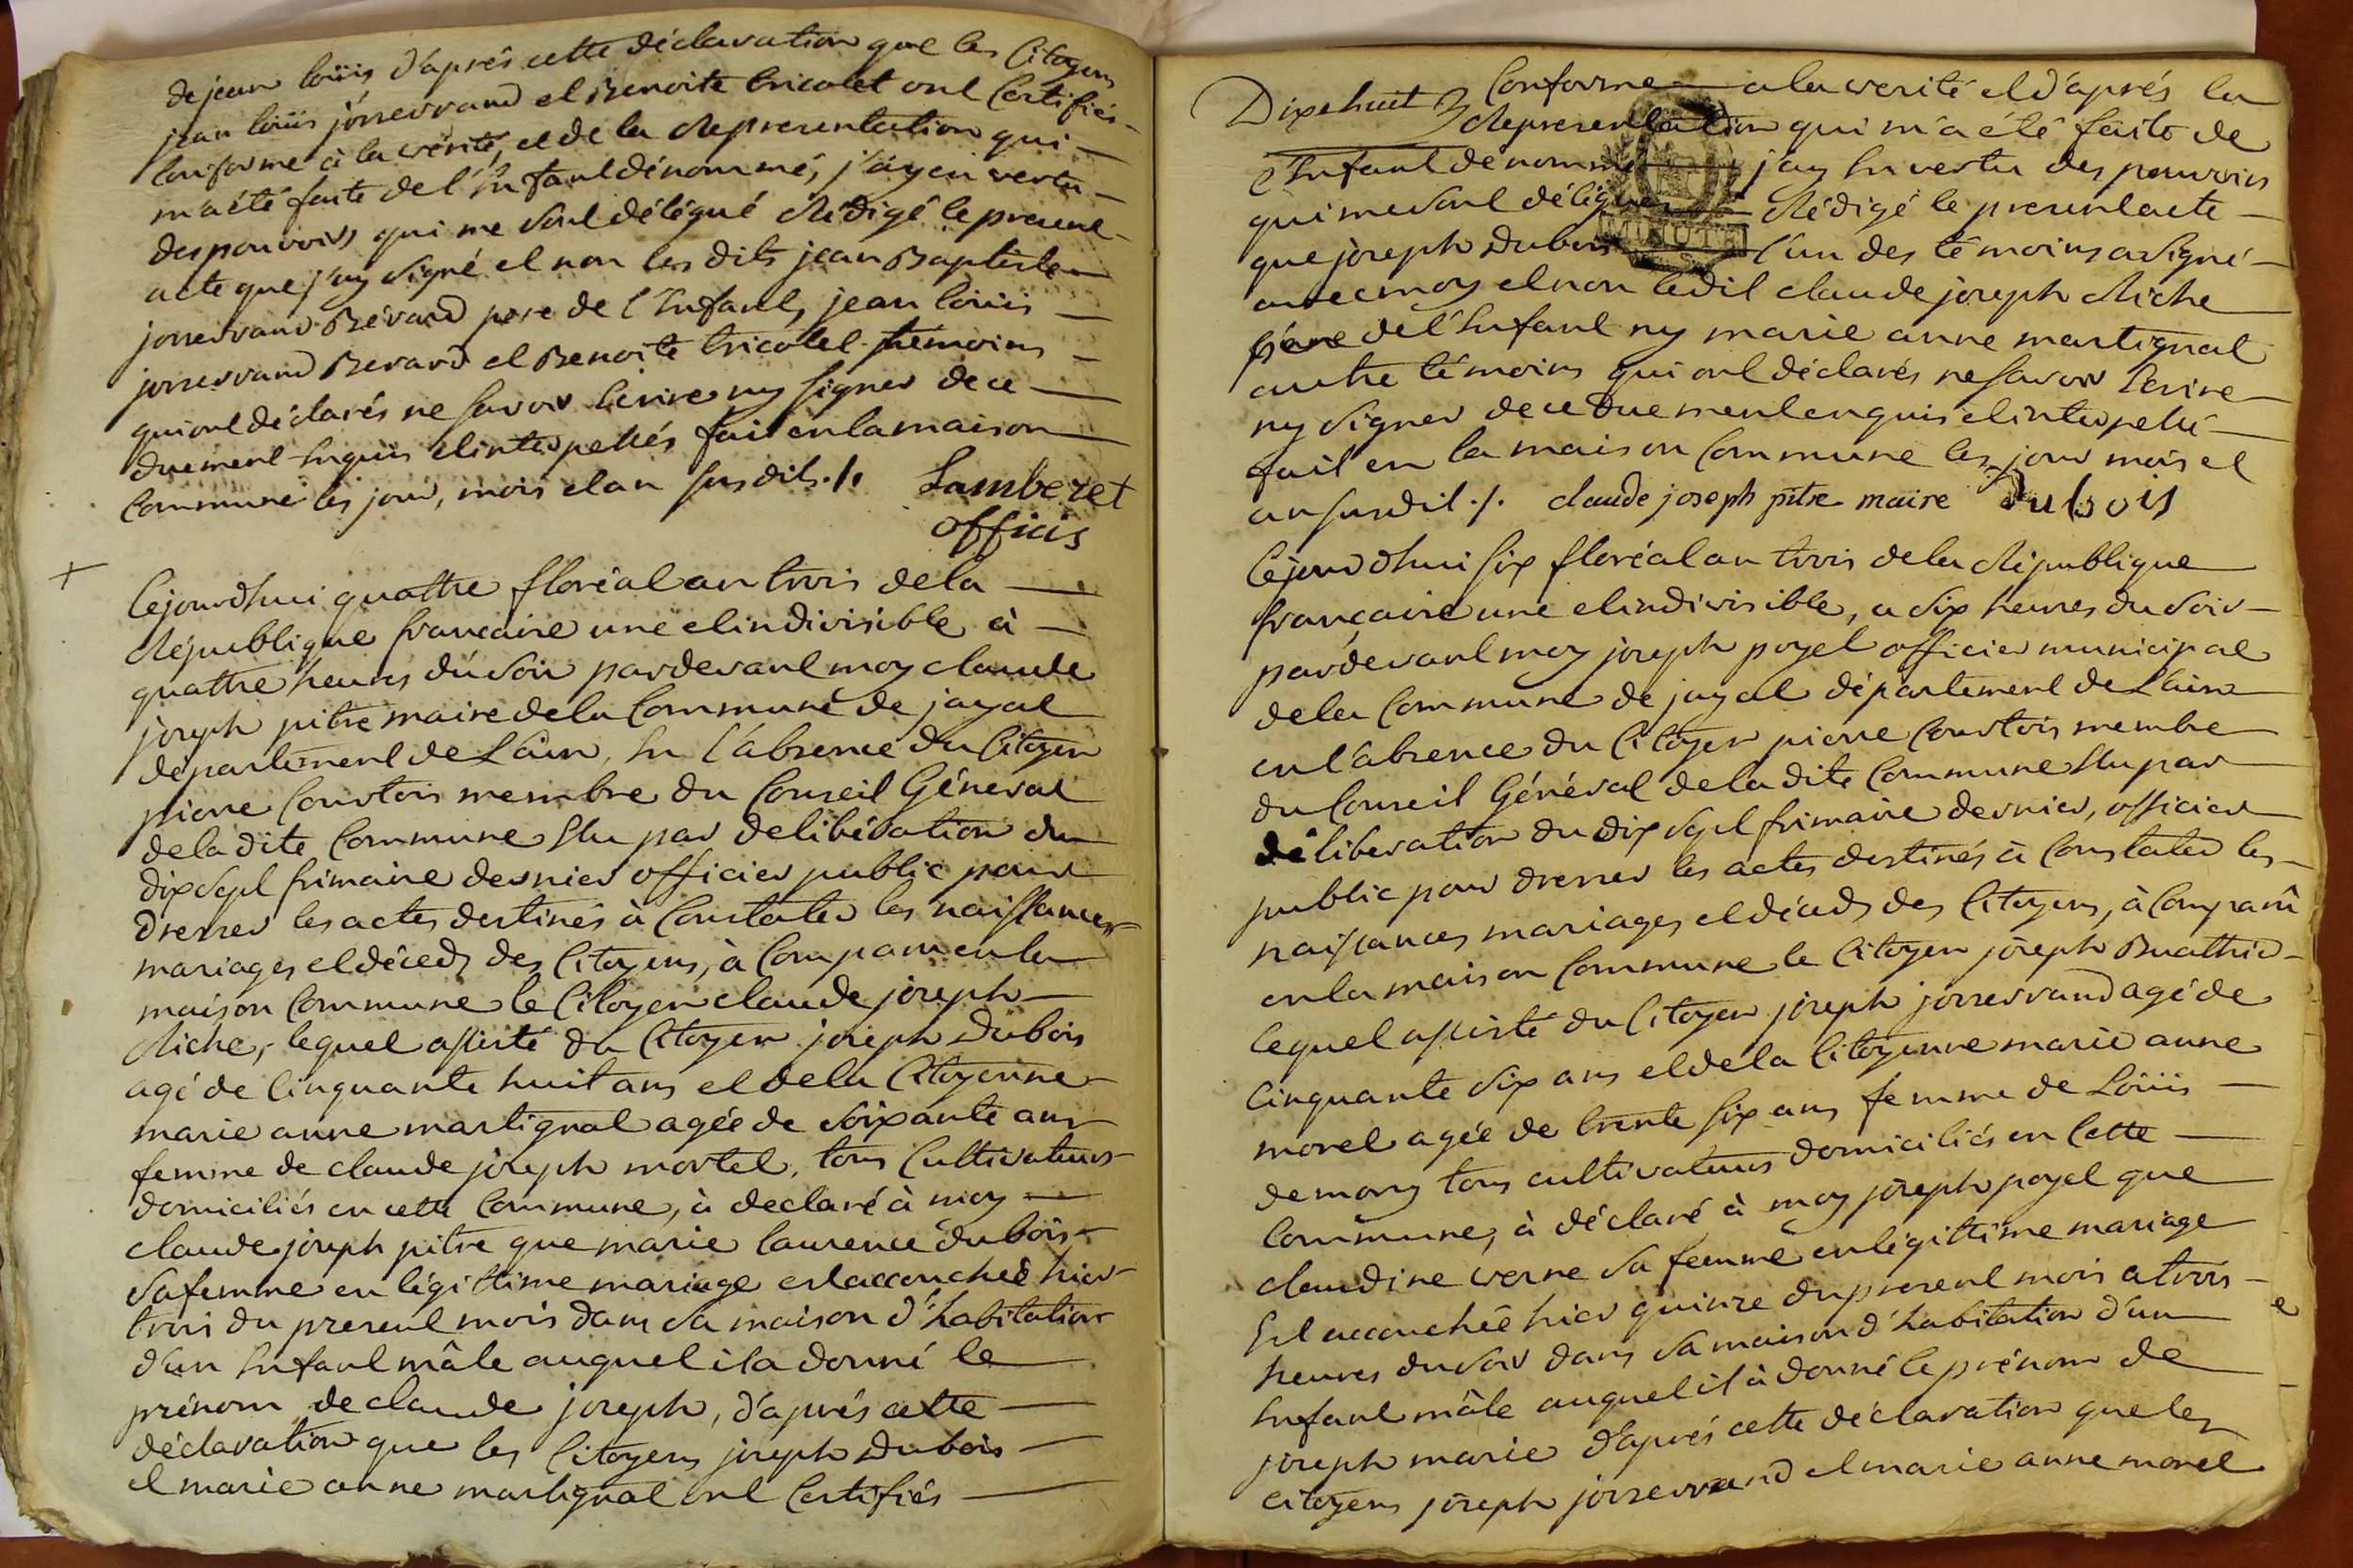 de jean loüis, d'aprés cette déclaration que les Citoyens
jean loüis josservand et Benoite tricotet ont Certifiés
Conforme à la vérité, et de la Representation qui
m'a été faite de l'Enfant dénommé, j'ay en vertu
des pouvoirs qui me sont délégué Rédigé le present
acte que j'ay signé et non les dits jean Baptiste
josservand Bévard pere de l'Enfant, jean loüis
josservand Bevard et Benoite tricotet témoins
qui ont déclarés ne savoir Ecrire ny signer de ce
duement Enquis et interpellés fait en la maison
Commune les jour, mois et an susdits ./.
Lamberet
officis
+
Cejourd'hui quattre floréal an trois de la
République francaise une et indivisible à
quattre heures du soir pardevant moy claude
joseph pitre maire de la Commune de jayat
département de L'ain, En l'absence du Citoyen
pierre Courtois membre du Conseil Géneral
de la dite Commune Elu par delibération du
dix sept frimaire dernier officier public pour
dresser les actes destinés à Constater les naissances
mariages et décéds des Citoyens, à Comparu en la
maison Commune le Citoyen claude joseph
Riche, lequel assisté du Citoyen joseph Dubois
agé de Cinquante huit ans et de la Citoyenne
marie anne martignat agée de soixante ans
femme de claude joseph mortel, tous Cultivateurs
domiciliés en cette Commune, à declaré à moy
claude joseph pitre que marie laurence dubois
sa femme en légittime mariage est accouchée hier
trois du present mois dans sa maison d'habitation
d'un Enfant mâle auquel il a donné le
prénom de claude joseph, d'aprés cette
déclaration que les Citoyens joseph Dubois
et marie anne martignat ont Certifiés
Dixehuit
Conforme a la verité et d'aprés la
Representation qui m'a été faite de
l'Enfant dénommé j'ay En vertu des pouvoirs
qui me sont délégués Rédigé le present acte
que joseph Dubois l'un des témoins a signé
MINUTE
avec moy et non ledit claude joseph Riche
pére de l'Enfant ny marie anne martignat
autre témoins qui ont déclarés ne savoir Ecrire
ny signer de ce duement enquis et interpellé
fait en la maison Commune les jour mois et
an susdit ./. claude joseph pitre maire Dubois
Cejourd'hui six floréal an trois de la République
françaire une et indivisible, a six heures du soir
pardevant moy joseph poyet officier municipal
de la Commune de jayat département de L'ain
en l'absence du Citoyen pierre Courtois membre
du Conseil Général de la dite Commune Elu par
délibération du dix sept frimaire dernier, officier
public pour dresser les actes destinés à Constater les
naissances mariages et décéds des Citoyens, à Comparû
en la maison Commune le Citoyen joseph Buathier
lequel assisté du Citoyen joseph josservand agé de
Cinquante six ans et de la Citoyenne marie anne
morel agée de trente six ans femme de Loüis
demons tous cultivateurs domiciliés en Cette
Commune, à déclaré à moy joseph poyet que
claudine verne sa femme en légittime mariage
Est accouchée hier quinze du present mois a trois
heures du soir dans sa maison d'habitation d'un
Enfant mâle auquel il à donné le prénom de
joseph marie d'aprés cette déclaration que les
citoyens joseph josservand et marie anne morel